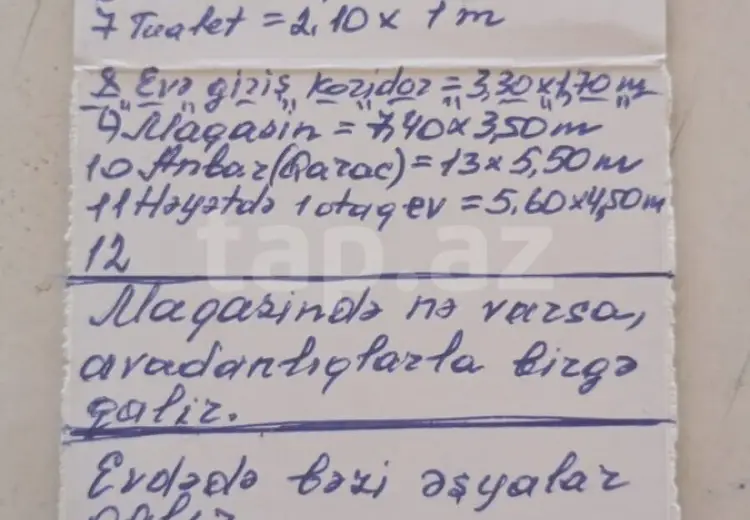 7 Tualet = 2,10 x 1 m
8 Evə giriş koridor = 3,30 x 1,70 m
9 Maqazin = 7,40 x 3,50 m
10 Anbar (Qarac) = 13 x 5,50 m
11 Həyətdə 1 otaq ev = 5,60 x 4,50 m
12
tap.az
Maqazində nə varsa,
avadanlıqlarla birgə
qalir.
Evdədə bəzi əşyalar
qalir